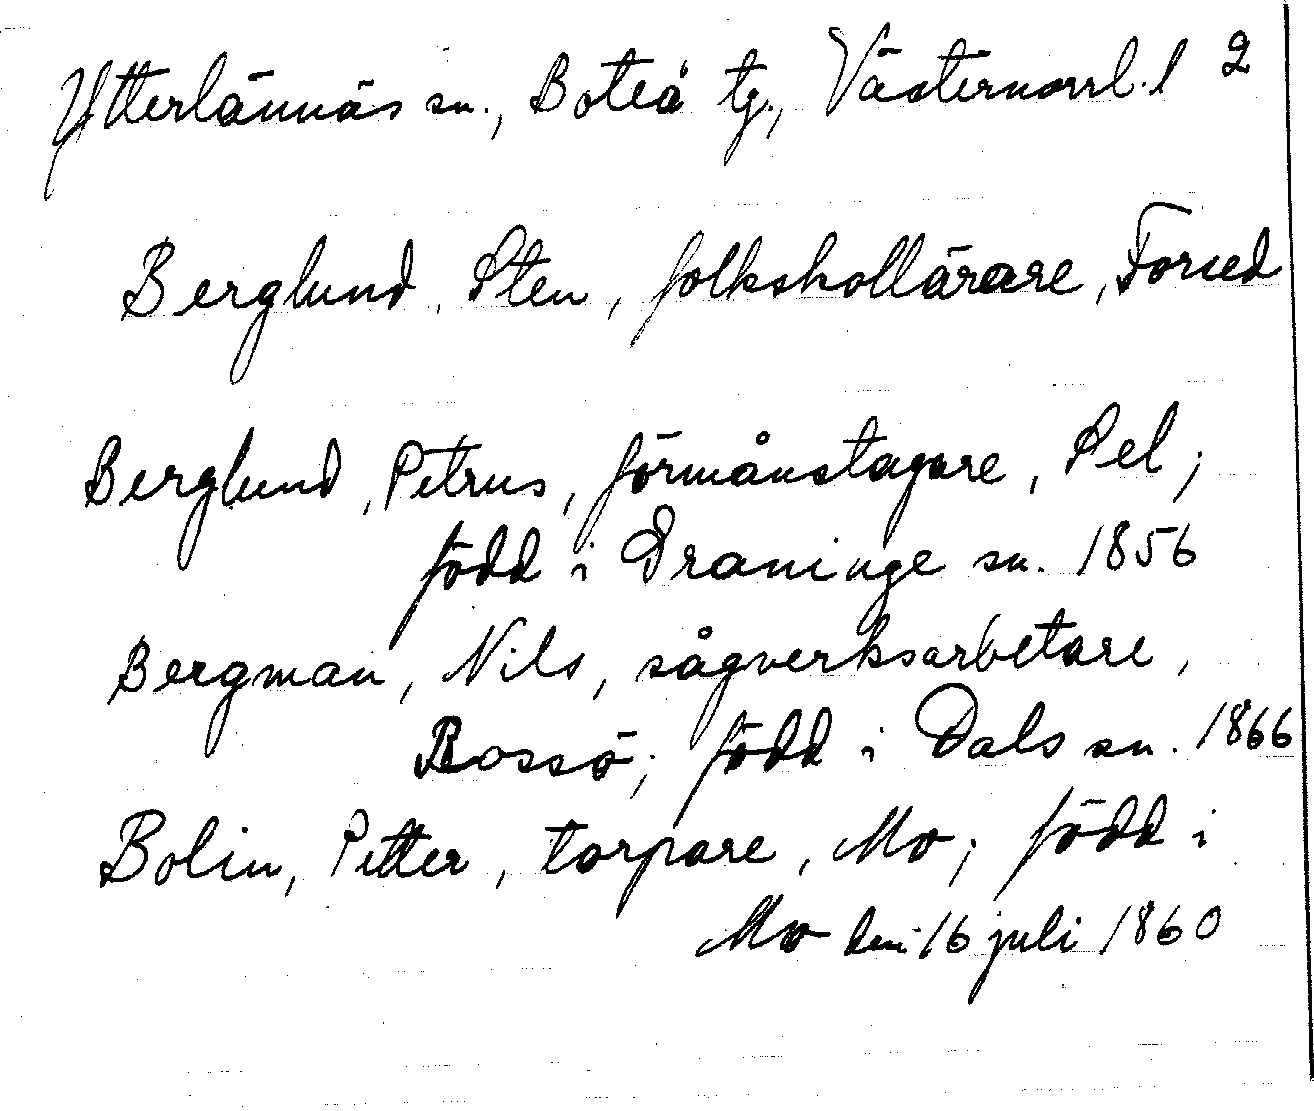 Ytterlännäs sn., Boteå tg., Västernorrl. l 2
Berglund, Sten, folkskollärare, Forsed
Berglund, Petrus, förmånstagare, Pel;
född i Graninge sn. 1856
Bergman, Nils, sågverksarbetare,
Rossö; född i Dals sn. 1866
Bolin, Petter, torpare, Mo; född i
Mo den 16 juli 1860